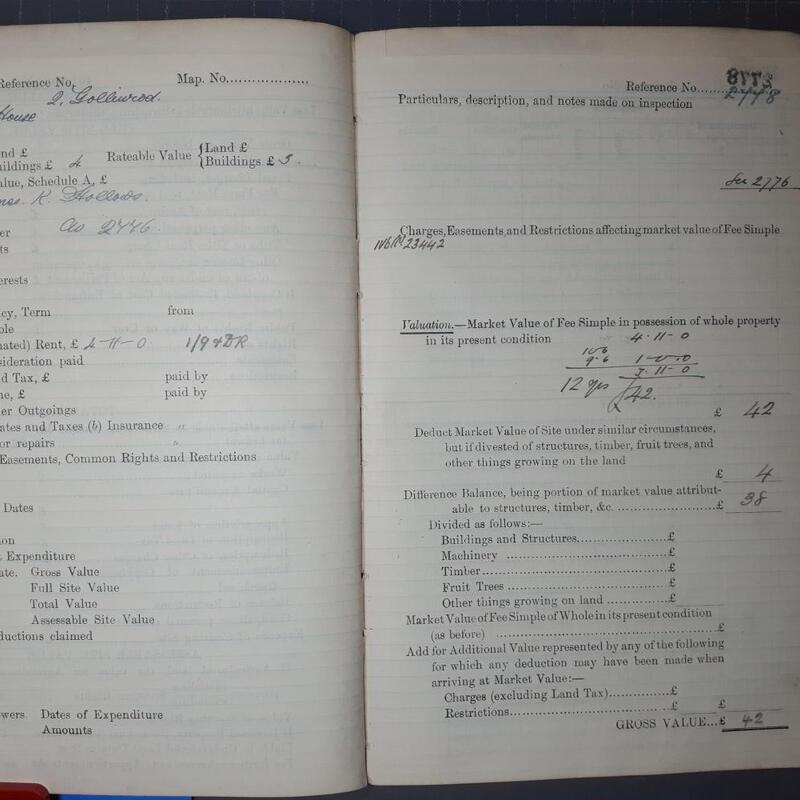 Reference No.
Map. No...................
2, Gollinrod.
House
nd £
Buildings £ 4
Rateable Value
Land £
Buildings £ 3.
alue, Schedule A, £
K. Hollows.
er
As 2776.
ts
erests
cy, Term
from
ble
nated) Rent, £ 4-11-0 1/9 & DR
sideration paid
d Tax, £
paid by
ne, £
paid by
er Outgoings
ates and Taxes (b) Insurance "
or repairs "
Easements, Common Rights and Restrictions
Dates
ion
t Expenditure
ate. Gross Value
Full Site Value
Total Value
Assessable Site Value
ductions claimed
wers Dates of Expenditure
Amounts
8772
Reference No. 2778
Particulars, description, and notes made on inspection
See 2776
Charges, Easements, and Restrictions affecting market value of Fee Simple
23442
Valuation.—Market Value of Fee Simple in possession of whole property
in its present condition
4-11-0
10/6
9-6
1-0-0
3-11-0
12 yrs
£42.
£ 42
Deduct Market Value of Site under similar circumstances,
but if divested of structures, timber, fruit trees, and
other things growing on the land
£ 4
Difference Balance, being portion of market value attribut-
able to structures, timber, &c. .........................£ 38
Divided as follows:—
Buildings and Structures....................£
Machinery ....................................£
Timber..........................................£
Fruit Trees ....................................£
Other things growing on land ...............£
Market Value of Fee Simple of Whole in its present condition
(as before) ..................................................£
Add for Additional Value represented by any of the following
for which any deduction may have been made when
arriving at Market Value:—
Charges (excluding Land Tax)..............£
Restrictions.....................................£ £
GROSS VALUE...£ 42